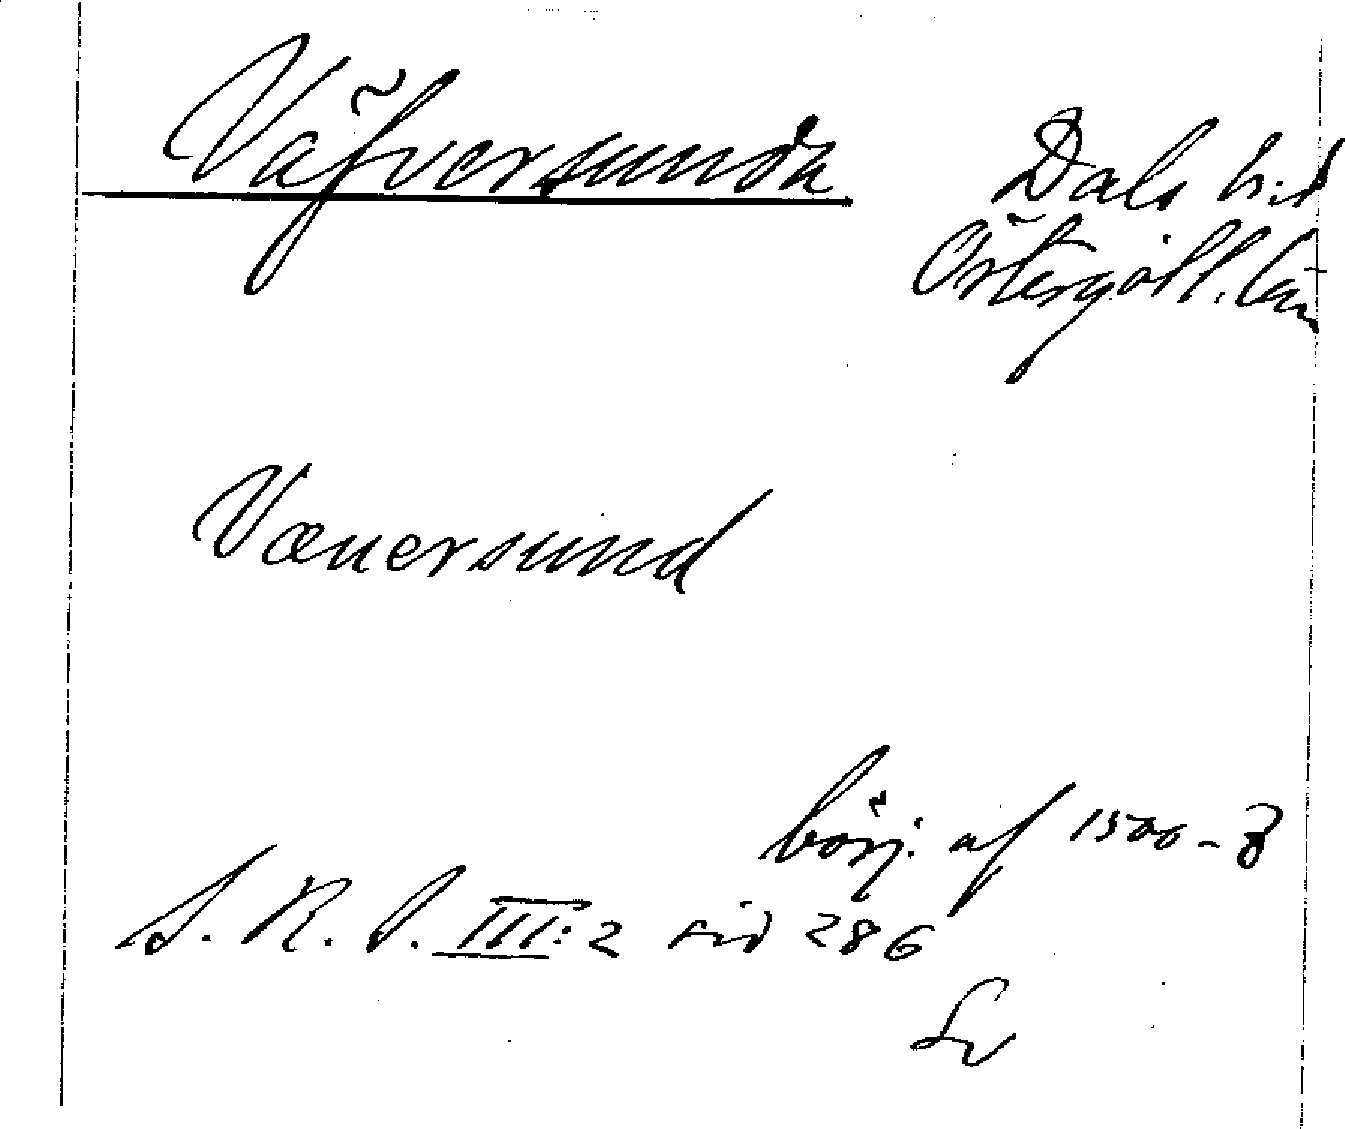 Väfversunda
Dals h:d
Östergötl. län
Væuersund
börj. af 1500-
S. R. S. III:2 sid 286